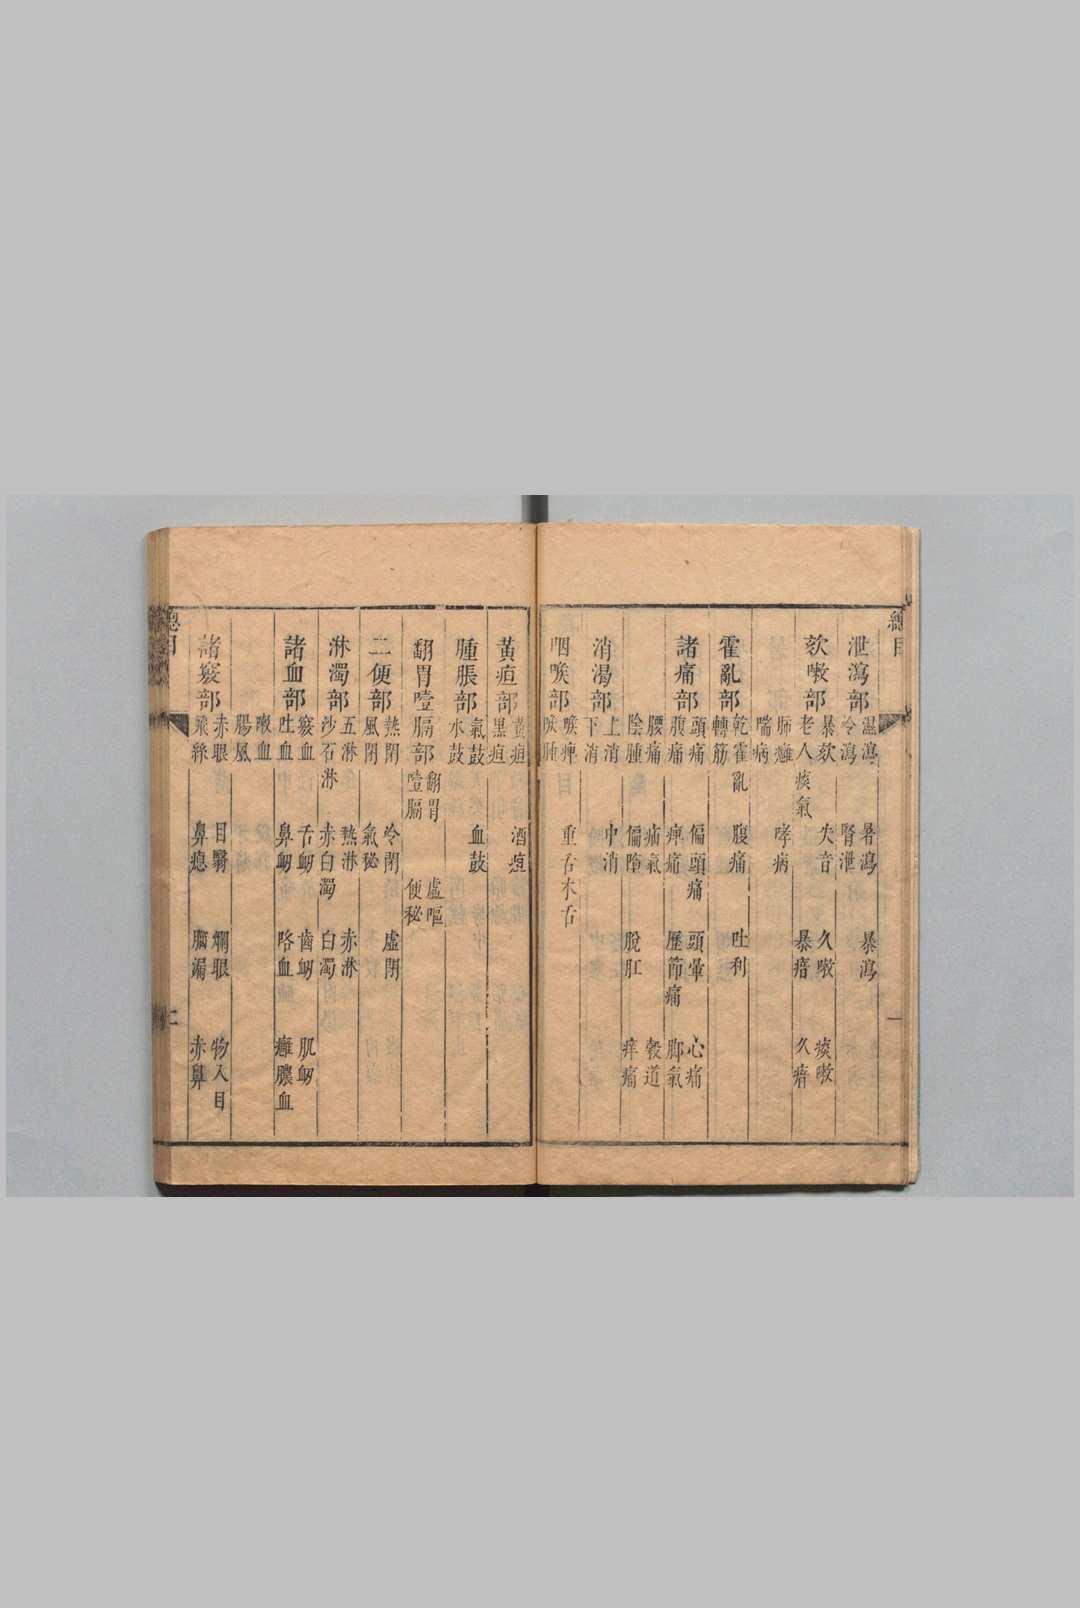 總目
一
泄瀉部
濕瀉 暑瀉 暴瀉
冷瀉 腎泄
欬嗽部
暴欬 失音 久嗽 痰嗽
老人痰氣 暴瘖 久瘖
肺癰 哮病
喘病
霍亂部
乾霍亂 腹痛 吐利
轉筋
諸痛部
頭痛 偏頭痛 頭暈 心痛
腹痛 痺痛 歷節痛 腳氣
腰痛 疝氣 穀道
陰腫 偏墮 脫肛 痒痛
消渴部
上消 中消
下消
咽喉部
喉痺 重舌木舌
喉腫
黃疸部
黃疸 酒疸
黑疸
腫脹部
氣鼓 血鼓
水鼓
翻胃噎膈部
翻胃 虛嘔
噎膈 便秘
二便部
熱閉 冷閉 虛閉
風閉 氣秘
淋濁部
五淋 熱淋 赤淋
沙石淋 赤白濁 白濁
諸血部
竅血 舌衂 齒衂 肌衂
吐血 鼻衂 咯血 癰膿血
嗽血
腸風
諸竅部
赤眼 目翳 爛眼 物入目
飛絲 鼻瘜 腦漏 赤鼻
總目
二